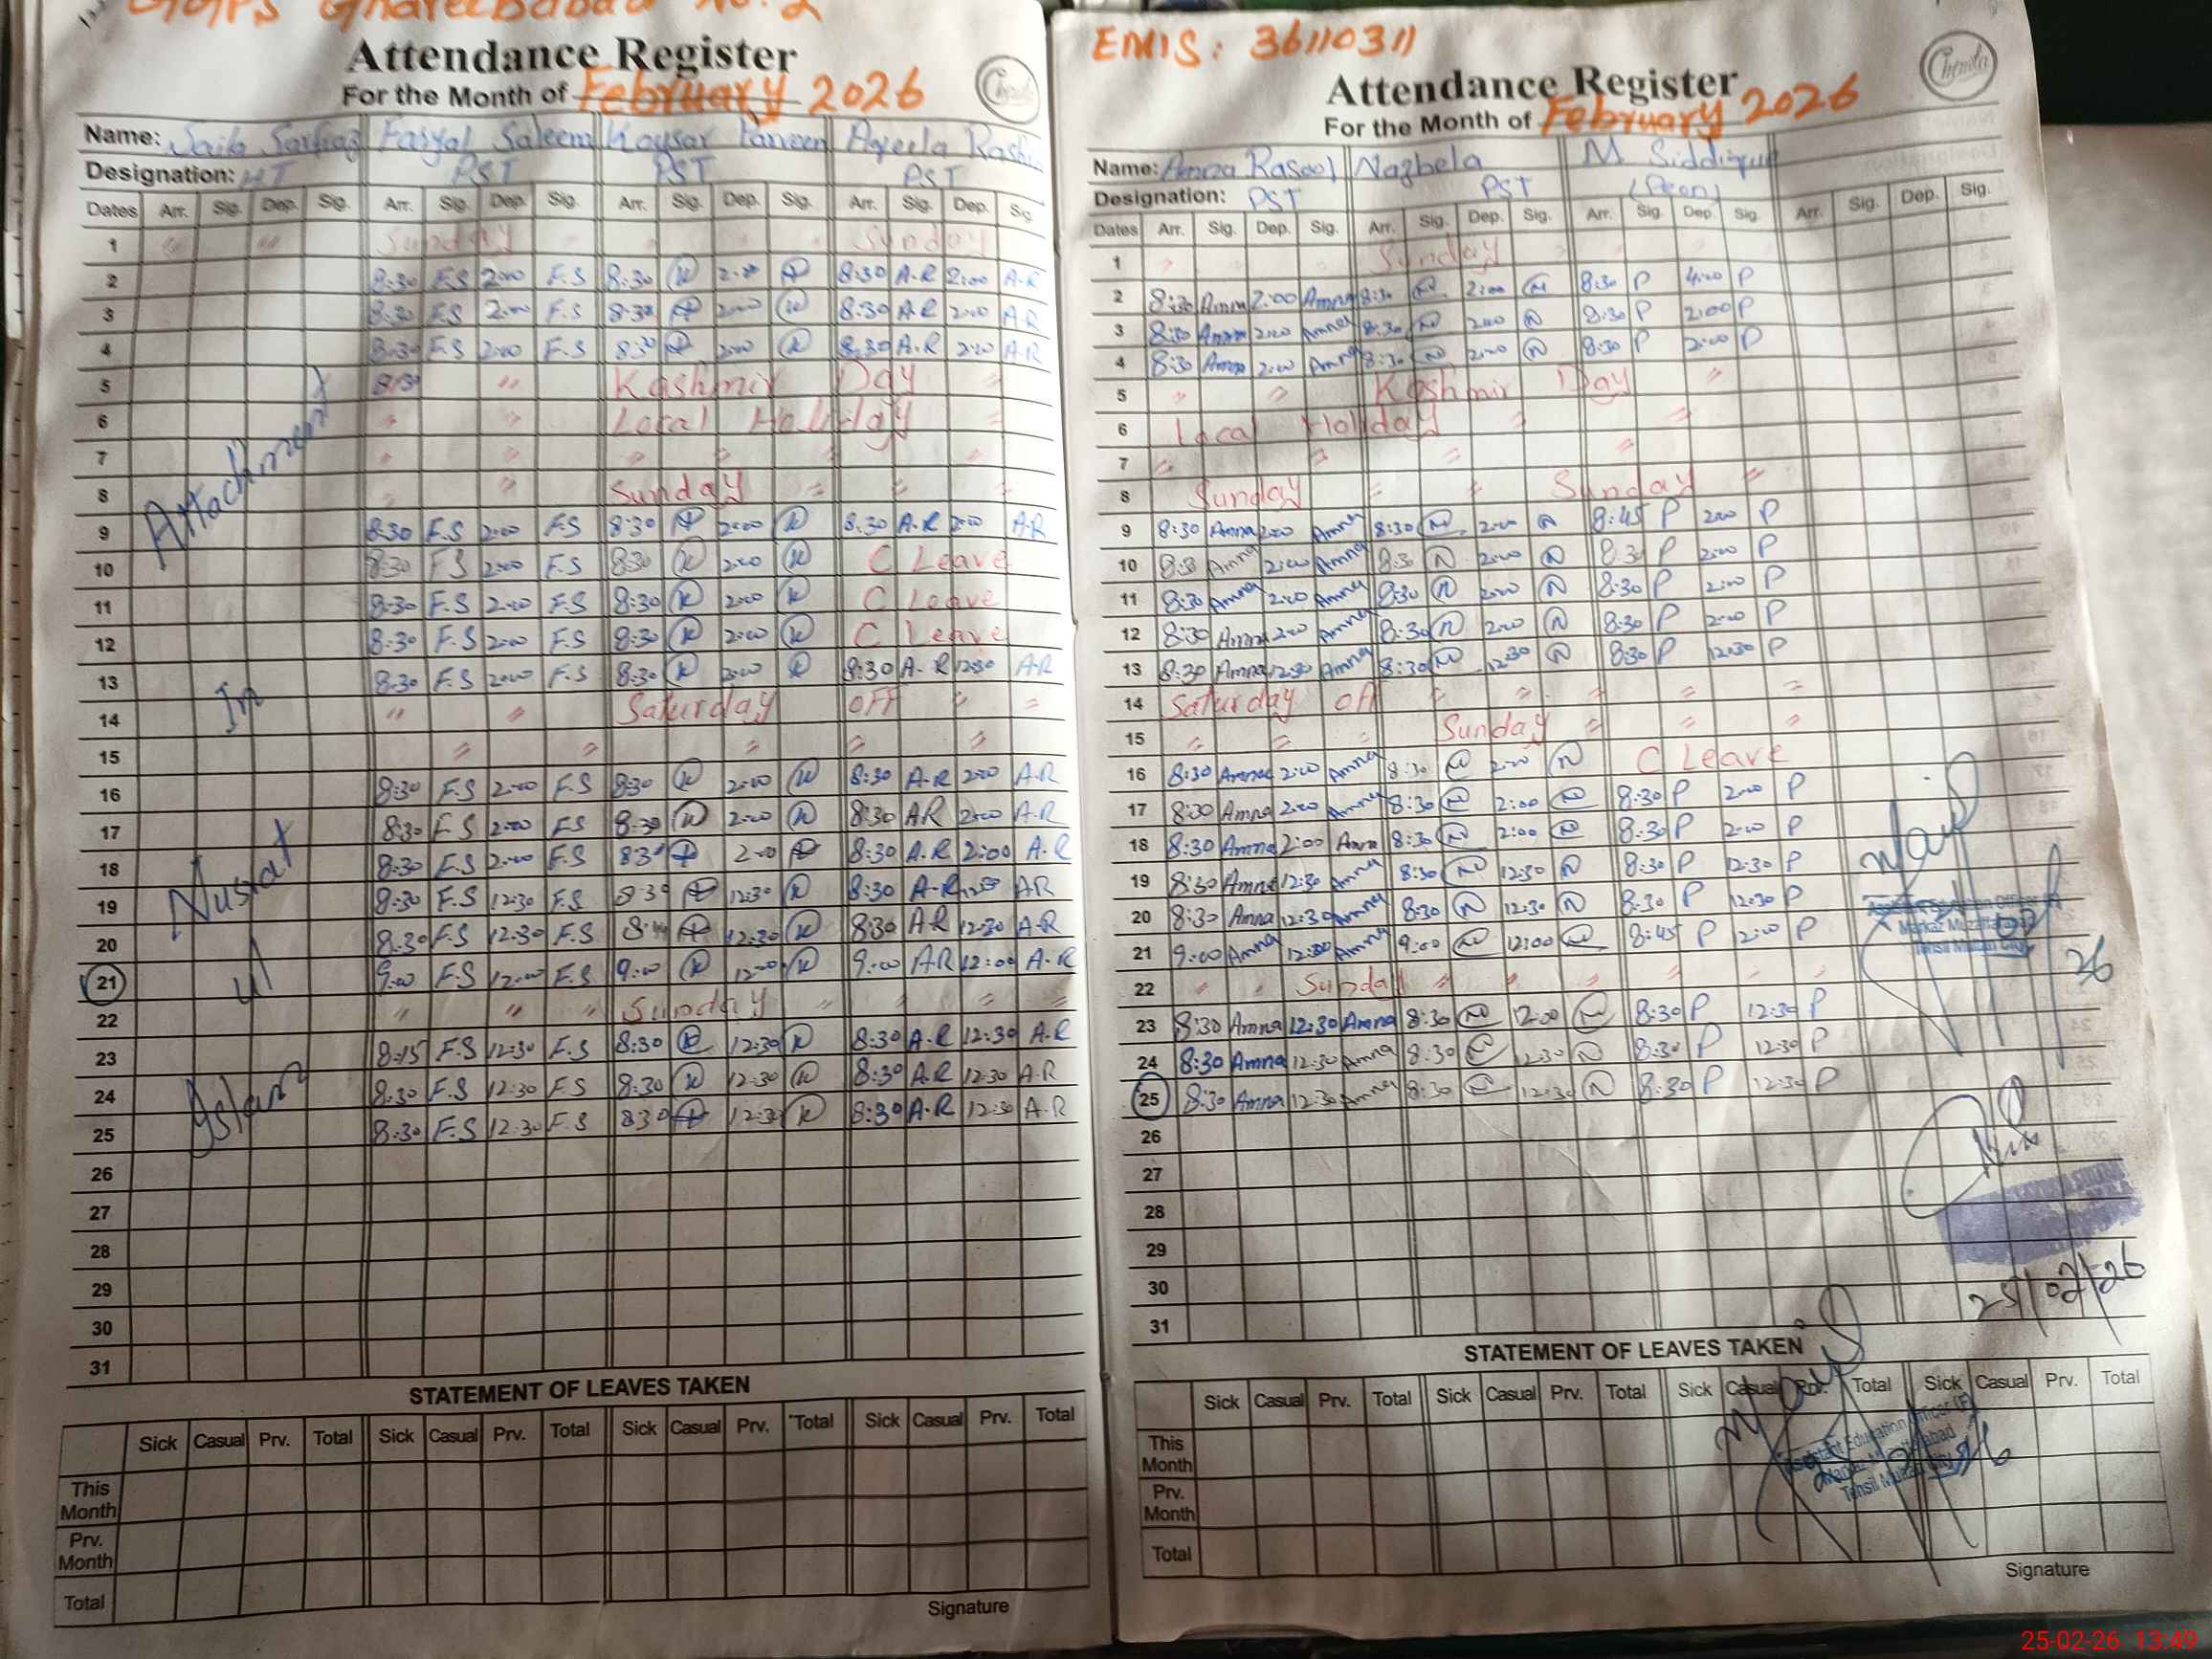 GGPS Ghareebabad No. 2
Attendance Register
For the Month of February 2026
Name: Saib Sarfraz Faryal Saleem Kausar Parveen Aqeela Rashi
Designation: HT PST PST PST
Dates Arr. Sig. Dep. Sig. Arr. Sig. Dep. Sig. Arr. Sig. Dep. Sig. Arr. Sig. Dep. Sig.
1 Sunday Sunday
2 8:30 F.S 2:00 F.S 8:30 K 2:00 8:30 A.R 2:00 A.R
3 8:30 F.S 2:00 F.S 8:30 2:00 K 8:30 A.R 2:00 A.R
4 8:30 F.S 2:00 F.S 8:30 2:00 K 8:30 A.R 2:00 A.R
5 8:30 " Kashmir Day "
6 " " Local Holiday "
7 " " " " "
8 " " Sunday " " "
9 8:30 F.S 2:00 F.S 8:30 2:00 K 8:30 A.R 2:00 A.R
10 8:30 F.S 2:00 F.S 8:30 K 2:00 K C Leave
11 8:30 F.S 2:00 F.S 8:30 K 2:00 K C Leave
12 8:30 F.S 2:00 F.S 8:30 K 2:00 K C Leave
13 8:30 F.S 2:00 F.S 8:30 K 2:00 K 8:30 A.R 12:30 A.R
14 " " Saturday OFF " "
15 " " " " "
16 8:30 F.S 2:00 F.S 8:30 K 2:00 K 8:30 A.R 2:00 A.R
17 8:30 F.S 2:00 F.S 8:30 K 2:00 K 8:30 A.R 2:00 A.R
18 8:30 F.S 2:00 F.S 8:30 2:00 8:30 A.R 2:00 A.R
19 8:30 F.S 12:30 F.S 8:30 12:30 K 8:30 A.R 12:30 A.R
20 8:30 F.S 12:30 F.S 12:30 K 8:30 A.R 12:30 A.R
21 9:00 F.S 12:00 F.S 9:00 K 12:00 K 9:00 A.R 12:00 A.R
22 " " " Sunday " " " "
23 8:15 F.S 12:30 F.S 8:30 K 12:30 K 8:30 A.R 12:30 A.R
24 8:30 F.S 12:30 F.S 8:30 K 12:30 K 8:30 A.R 12:30 A.R
25 8:30 F.S 12:30 F.S 8:30 12:30 K 8:30 A.R 12:30 A.R
26
27
28
29
30
31
Attachment
In
Nusrat
ul
Islam
STATEMENT OF LEAVES TAKEN
Sick Casual Prv. Total Sick Casual Prv. Total Sick Casual Prv. Total Sick Casual Prv. Total
This Month
Prv. Month
Total
Signature
EMIS: 36110311
Attendance Register
For the Month of February 2026
Chenda
Name: Amna Rasool Nazbela M Siddique
Designation: PST PST (Peon)
Dates Arr. Sig. Dep. Sig. Arr. Sig. Dep. Sig. Arr. Sig. Dep. Sig. Arr. Sig. Dep. Sig.
1 Sunday
2 8:30 Amna 2:00 Amna 8:30 N 2:00 N 8:30 P 4:00 P
3 8:30 Amna 2:00 Amna 8:30 N 2:00 N 8:30 P 2:00 P
4 8:30 Amna 2:00 Amna 8:30 N 2:00 N 8:30 P 2:00 P
5 " " Kashmir Day "
6 Local Holiday " "
7 " " " "
8 Sunday " " Sunday "
9 8:30 Amna 2:00 Amna 8:30 N 2:00 N 8:45 P 2:00 P
10 8:30 Amna 2:00 Amna 8:30 N 2:00 N 8:30 P 2:00 P
11 8:30 Amna 2:00 Amna 8:30 N 2:00 N 8:30 P 2:00 P
12 8:30 Amna 2:00 Amna 8:30 N 2:00 N 8:30 P 2:00 P
13 8:30 Amna 12:30 Amna 8:30 N 12:30 N 8:30 P 12:30 P
14 Saturday Off " " " " "
15 " " " Sunday " " "
16 8:30 Amna 2:00 Amna 8:30 N 2:00 N C Leave
17 8:30 Amna 2:00 Amna 8:30 N 2:00 N 8:30 P 2:00 P
18 8:30 Amna 2:00 Amna 8:30 N 2:00 N 8:30 P 2:00 P
19 8:30 Amna 12:30 Amna 8:30 N 12:30 N 8:30 P 12:30 P
20 8:30 Amna 12:30 Amna 8:30 N 12:30 N 8:30 P 12:30 P
21 9:00 Amna 12:00 Amna 9:00 N 12:00 N 8:45 P 12:00 P
22 " " Sunday " " " " " "
23 8:30 Amna 12:30 Amna 8:30 N 12:00 N 8:30 P 12:30 P
24 8:30 Amna 12:30 Amna 8:30 N 12:30 N 8:30 P 12:30 P
25 8:30 Amna 12:30 Amna 8:30 N 12:30 N 8:30 P 12:30 P
26
27
28
29
30
31
Tehsil Multan City
26
25/02/26
STATEMENT OF LEAVES TAKEN
Sick Casual Prv. Total Sick Casual Prv. Total Sick Casual Prv. Total Sick Casual Prv. Total
This Month
Prv. Month
Total
Assistant Education Officer (F)
Tehsil Multan City
Signature
25-02-26 13:49